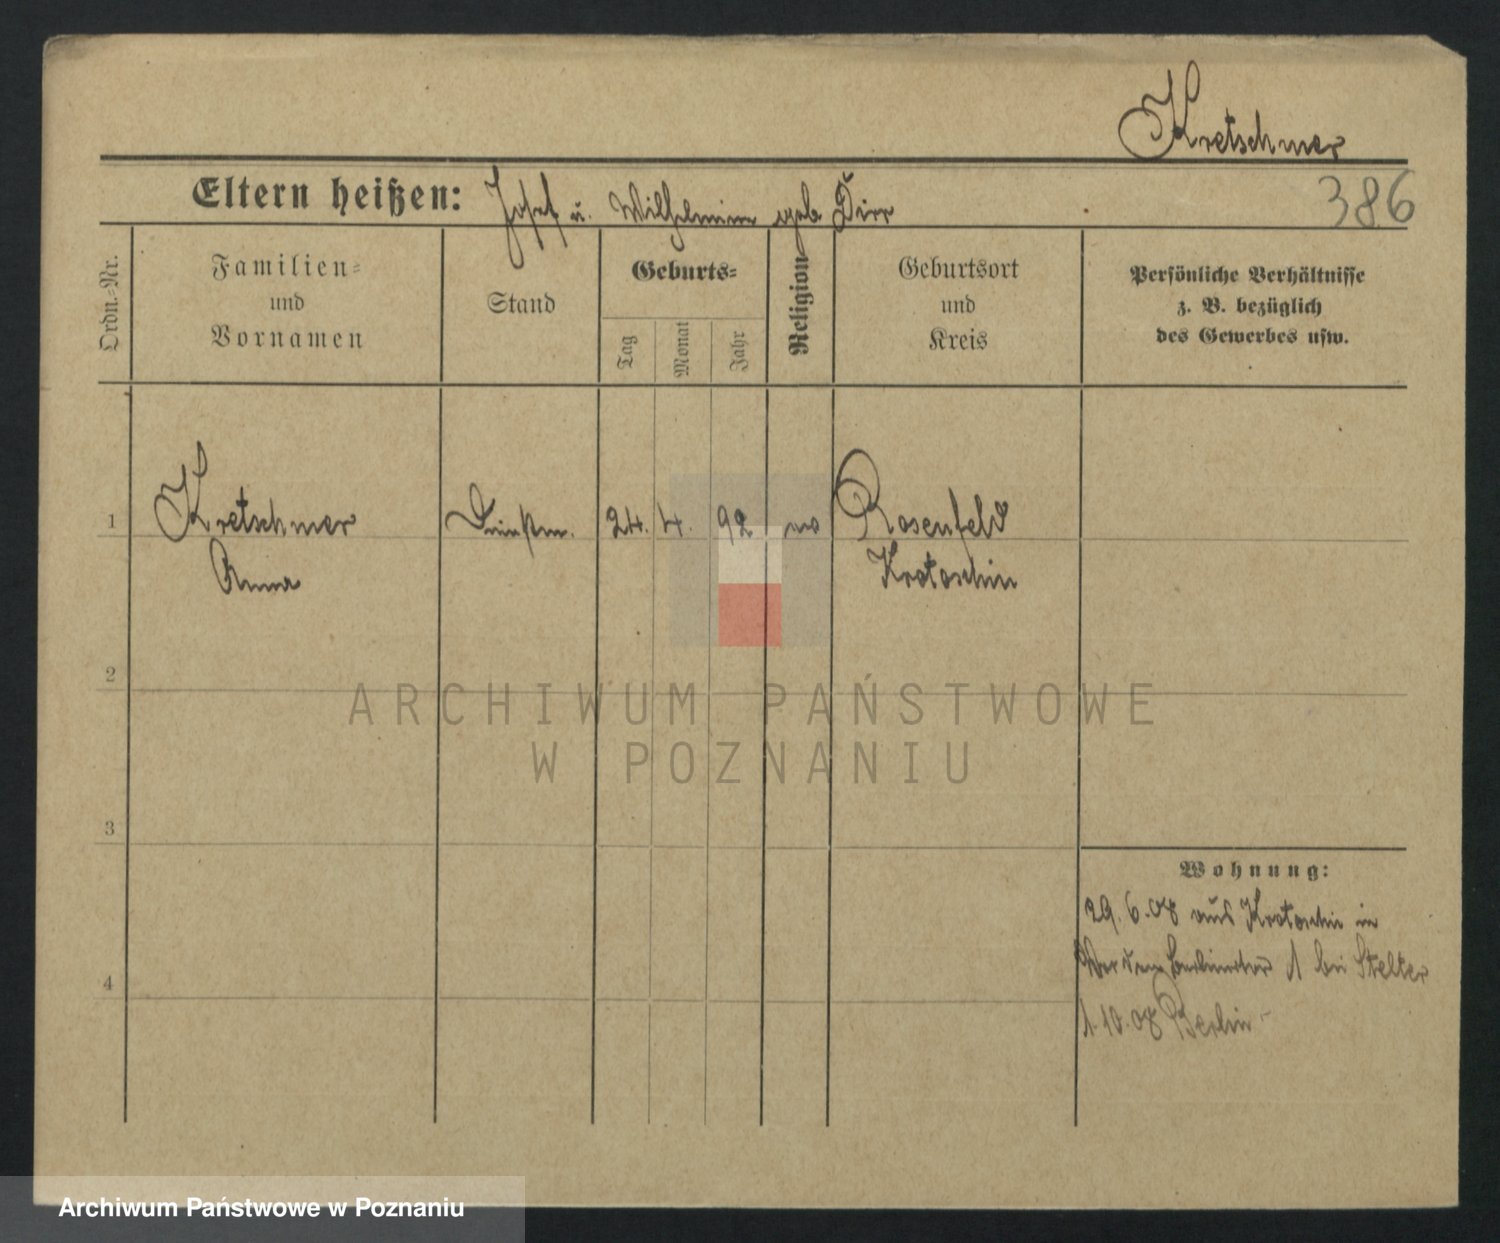 Kretschmer
Eltern heißen: Josef u. Wilhelmine geb. Dirr
386
Ordn.-Nr.
Familien-
und
Vornamen
Stand
Geburts-
Tag
Monat
Jahr
Religion
Geburtsort
und
Kreis
Persönliche Verhältnisse
z. B. bezüglich
des Gewerbes usw.
1
Kretschmer
Anna
Dienstm.
24. 4. 92
Rosenfeld
Krotoschin
2
ARCHIWUM PAŃSTWOWE
W POZNANIU
3
Wohnung:
29. 6. 08 aus Krotoschin in
1 bei Stelter
4
1. 10. 08 Berlin
Archiwum Państwowe w Poznaniu